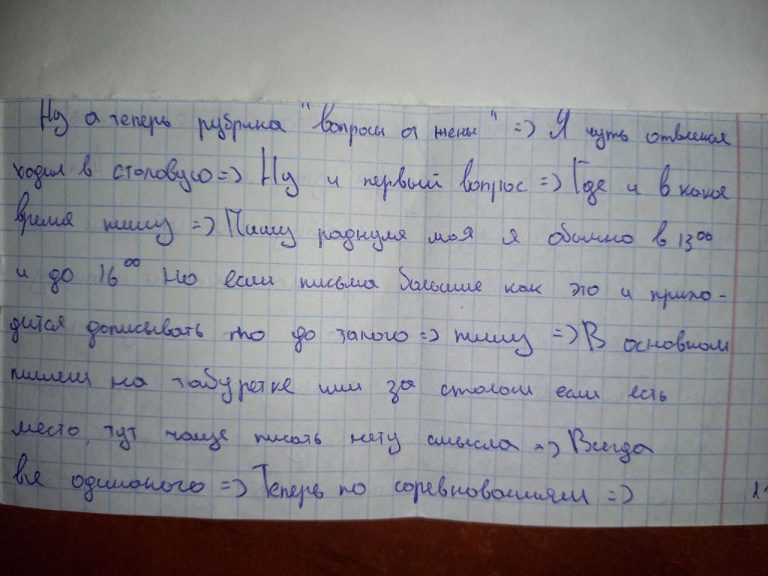 Ну а теперь рубрика "вопросы от жены" => Я чуть отвлекся
ходил в столовую => Ну и первый вопрос => Где и в какое
время пишу => Пишу роднуля моя я обычно в 13⁰⁰
и до 16⁰⁰ но если письма большие как это и прихо-
дится дописывать то до такого => пишу => В основном
пишем на табуретке или за столом если есть
место, тут чаще писать нету смысла => Всегда
все одинаково => Теперь по соревнованиям =>